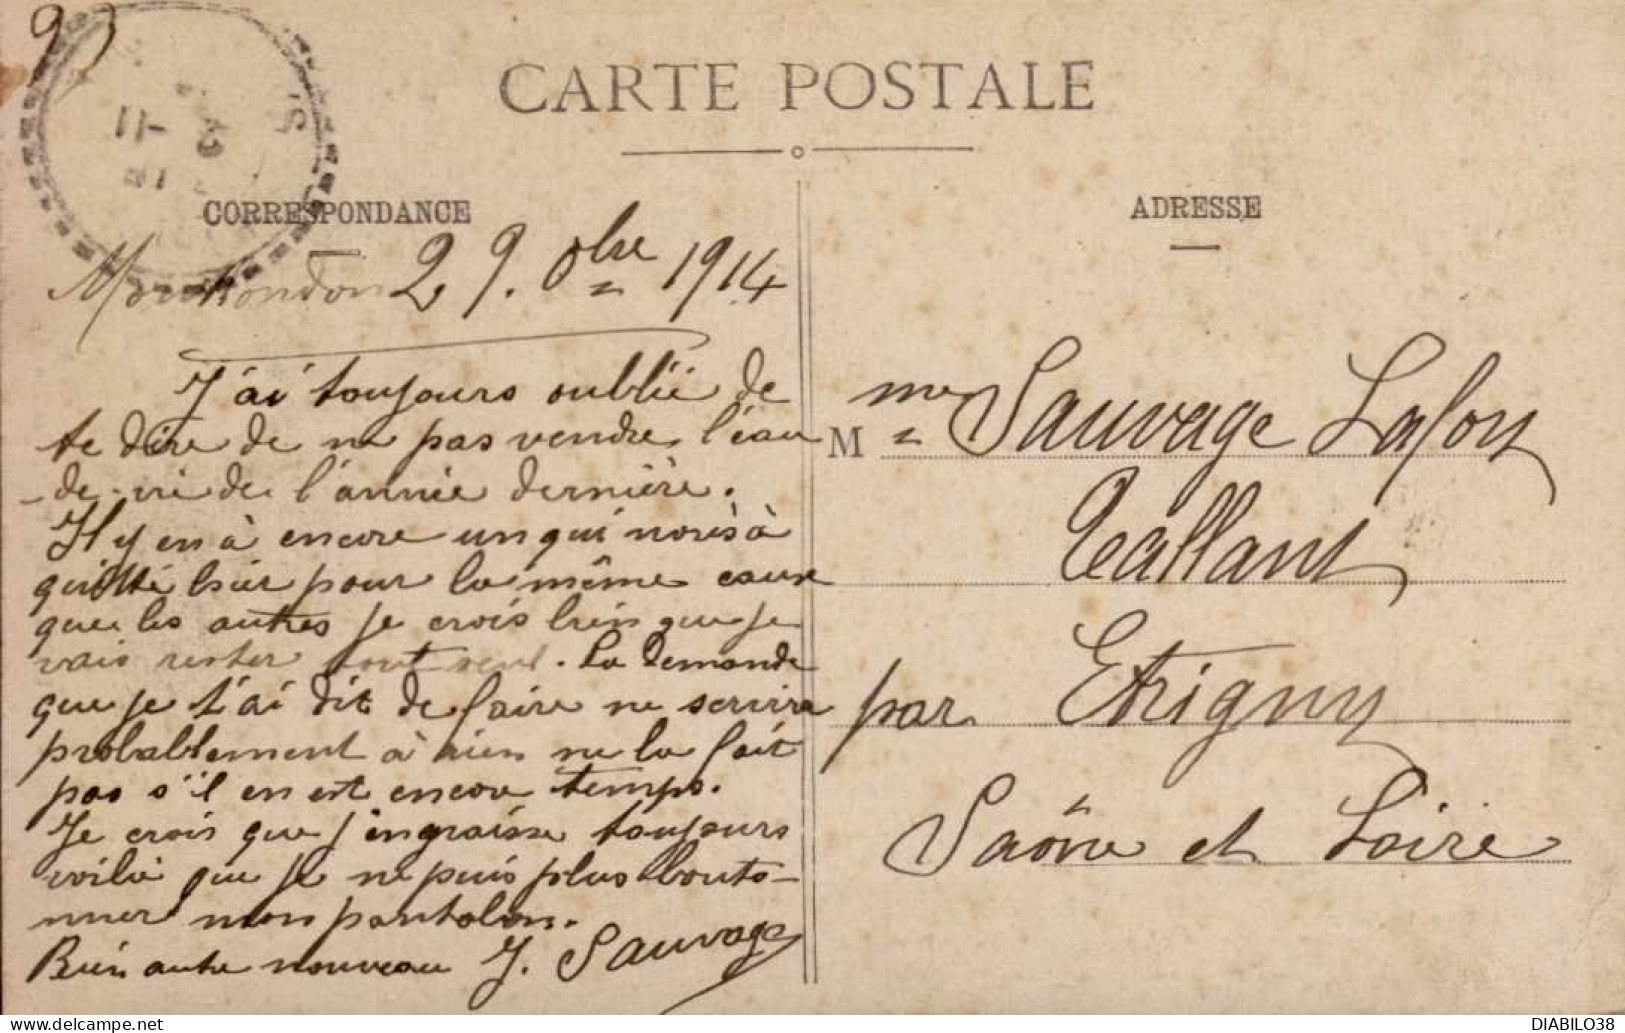 93
CARTE POSTALE
CORRESPONDANCE
ADRESSE
29. 8bre 1914
J'ai toujours oublié de
te dire de ne pas vendre l'eau
-de-vie de l'année dernière.
Il y en à encore un qui nous à
quitté hier pour la même cause
que les autres je crois bien que je
vais rester tout seul. La demande
que je t'ai dit de faire ne servira
probablement à rien ne la fait
pas s'il en est encore temps.
Je crois que j'engraisse toujours
voilà que je ne puis plus bouto-
nner mon pantalon.
Bien autre nouveau J. Sauvage
M me Sauvage Lafon
Tallant
par Etrigny
Saône et Loire
DIABILO38